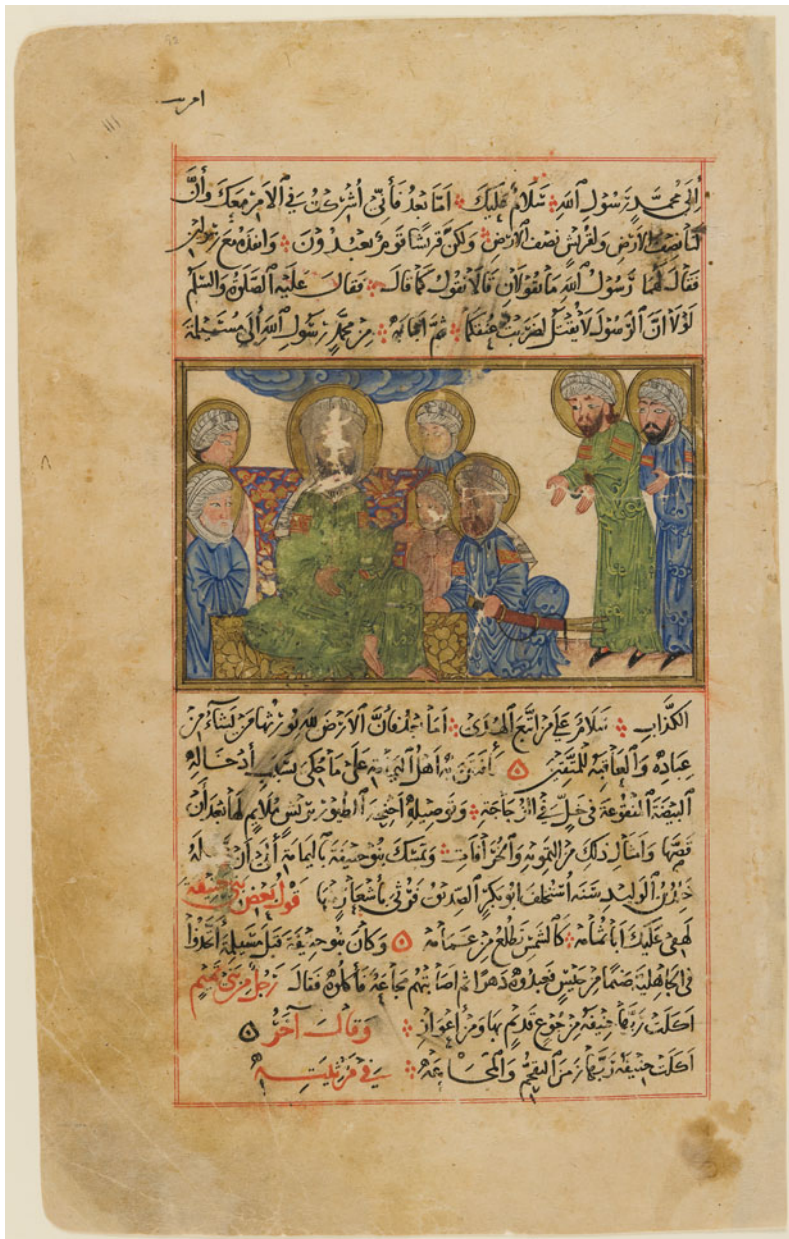 إلى محمد رسول الله سلام عليك أما بعد فأني أشركت في الأمر معك وأن
لنا نصف الأرض ولقريش نصف الأرض ولكن قريشا قوم يعبدون وانفذه مع رسولين
فقال لهما رسول الله ما تقولان قالا نقول كما قال فقال عليه الصلوة والسلم
لولا ان الرسول لا يقتل لضربت عنقكما ثم اجابه من محمد رسول الله إلى مسيلمة
الكذاب سلام على من اتبع الهدى أما بعد فان الأرض لله يورثها من يشاء من
عباده والعاقبة للمتقين فافتتن به أهل اليمامة على ما حكى بسبب أدخاله
البيضة المنقوعة في خل في الزجاجة وتوصيله اجنحة الطيور بريش ملايم لها بعد أن
قصها وامثال ذلك من التمويه والخرافات وتمسك بنو حنيفة باليمامة أنى أن له
خالد بن الوليد سنة استخلف ابو بكر الصديق فرثى بأشعار بها قول بعض بني حنيفة
لهفى عليك أبا ثمامه كالشمس تطلع من غمامه وكان بنو حنيفة قبل مسيلمة أتخذوا
في الجاهلية صنما من حيس فعبدوه دهرا ثم اصابتهم مجاعة فأكلوه فقال رجل من بني تميم
اكلت ربها حنيفة من جوع قديم بها ومن أعواز وقال آخر
اكلت حنيفة ربها زمن التقحم والمجاعه في مرثيته